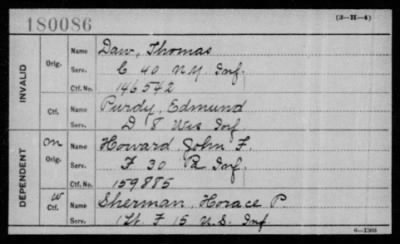 180086
(3—H—4)
INVALID
Orig.
Name Daw, Thomas
Serv. C 40 N.Y. Inf.
Ctf. No. 146542
Ctf.
Name Purdy, Edmund
Serv. D 8 Wis Inf
DEPENDENT
On
Orig.
Name Howard John F.
Serv. F 30 Inf.
Ctf. No. 159885
W
Ctf.
Name Sherman, Horace P.
Serv. 1 Lt. F 15 U.S. Inf